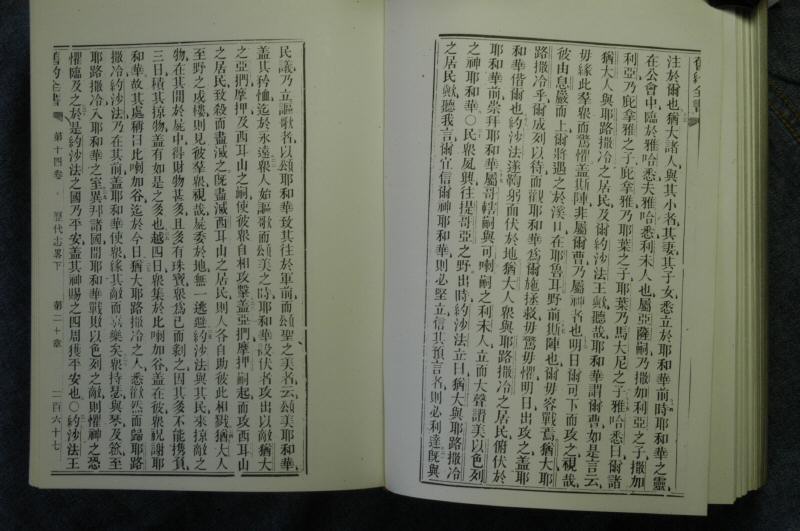 舊約全書
注於爾也猶大諸人與其小名其妻其子女悉立於耶和華前時耶和華之靈
在公會中臨於雅哈悉夫雅哈悉利未人也屬亞薩嗣乃撒加利亞之子撒加
利亞乃庇拿雅之子庇拿雅乃耶葉之子耶葉乃馬大尼之子雅哈悉曰爾諸
猶大人與耶路撒冷之居民及爾約沙法王歟聽哉耶和華謂爾曹如是言云
毋緣此羣衆而驚懼蓋斯陣非屬爾曹乃屬神者也明日爾可下而攻之視哉
彼由息嚴而上爾將遇之於溪口在耶魯耳野前斯陣也爾毋容戰焉猶大耶
路撒冷乎爾成列以待而觀耶和華爲爾施拯救毋驚毋懼明日出攻之蓋耶
和華偕爾也約沙法遂鞠躬而伏於地猶大人衆與耶路撒冷之居民俯伏於
耶和華前崇拜耶和華屬哥轄嗣與可喇嗣之利未人立而大聲讚美以色列
之神耶和華○民衆夙興往提哥亞之野出時約沙法立曰猶大與耶路撒冷
之居民歟聽我言爾宜信爾神耶和華則必堅立信其預言者則必利達旣與
民議乃立謳歌者以頌耶和華致其往於軍前而頌聖之美者云頌美耶和華
蓋其矜恤迄於永遠衆人始謳歌而頌美之時耶和華設伏者攻出以敵猶大
之亞捫摩押及西耳山之嗣使彼衆自相攻擊蓋亞捫摩押嗣起而攻西耳山
之居民致殺而盡滅之旣盡滅西耳山之居民則人各自助彼此相戮猶大人
至野之戍樓則見彼羣衆視哉屍委於地無一逃避約沙法與其民來掠敵之
物在其間於屍中得財物甚多且多有珠寶衆爲己而剝之因其多不能携負
三日積其掠物蓋有如是之多也越四日衆集於比喇加谷蓋在彼衆祝謝耶
和華故其處稱曰比喇加谷迄於今日猶大耶路撒冷之人悉歡然而歸耶路
撒冷約沙法乃在其前蓋耶和華使衆緣其敵而喜樂矣衆持瑟與琴及笯至
耶路撒冷入耶和華之室異拜諸國聞耶和華戰敗以色列之敵則懼神之恐
懼臨及之於是約沙法之國乃平安蓋其神賜之四周獲平安也○約沙法王
舊約全書 第十四卷 歷代志畧下 第二十章 二百六十七